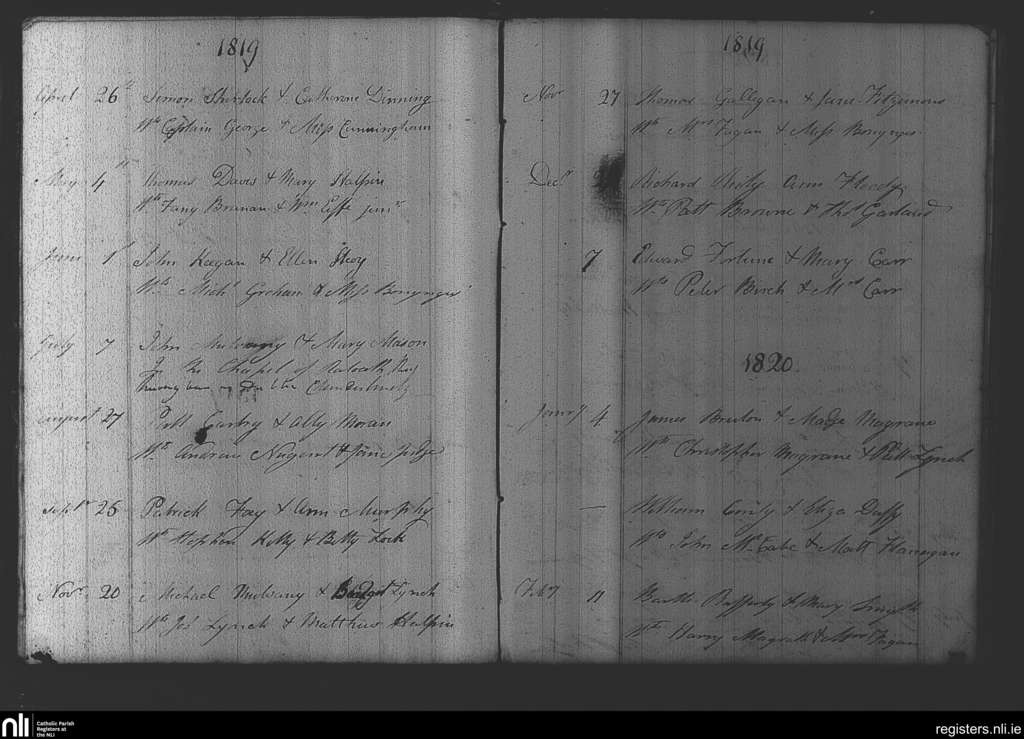 1819
April 26th Simon Sherlock & Catherine Dinning
Wts Captain George & Miss Cunningham
May 4th Thomas Davis & Mary Halpin
Wts Fany Brenan & Wm Eiffe junr
June 1st John Keegan & Ellen
Wts Michl Grehan & Miss Bonynger
July 7 John Mulvany & Mary Mason
In the Chapel of Ratoath they
having been Clandestinely
August 27 Patt Carbry & Ally Moran
Wts Andrew Nugent & Joine Judge
Septr 25 Patrick Fay & Ann Murphy
Wts Stephen Kelly & Betty Lock
Novr 20 Michael Mulvany & Bridget Lynch
Wts Jos Lynch & Matthew Halpin
1819
Novr 27 Thomas Gallegan & Jane Fitzimons
Wts Mrs Fagan & Miss Bonynger
Decr Richard Ann
Wts Patt Browne & Thos Garland
7 Edward Fortune & Mary Carr
Wts Peter Birch & Mrs Carr
1820
Janry 4 James Bruton & Madge Magrane
Wts Christopher Magrane & Patt Lynch
— William & Eliza Duff
Wts John McCabe & Matt Flanagan
Feby 11 Barth Rafferty & Mary Smyth
Wts Harry Magrath & Mrs Fagan
nli
Catholic Parish
Registers at
the NLI
registers.nli.ie